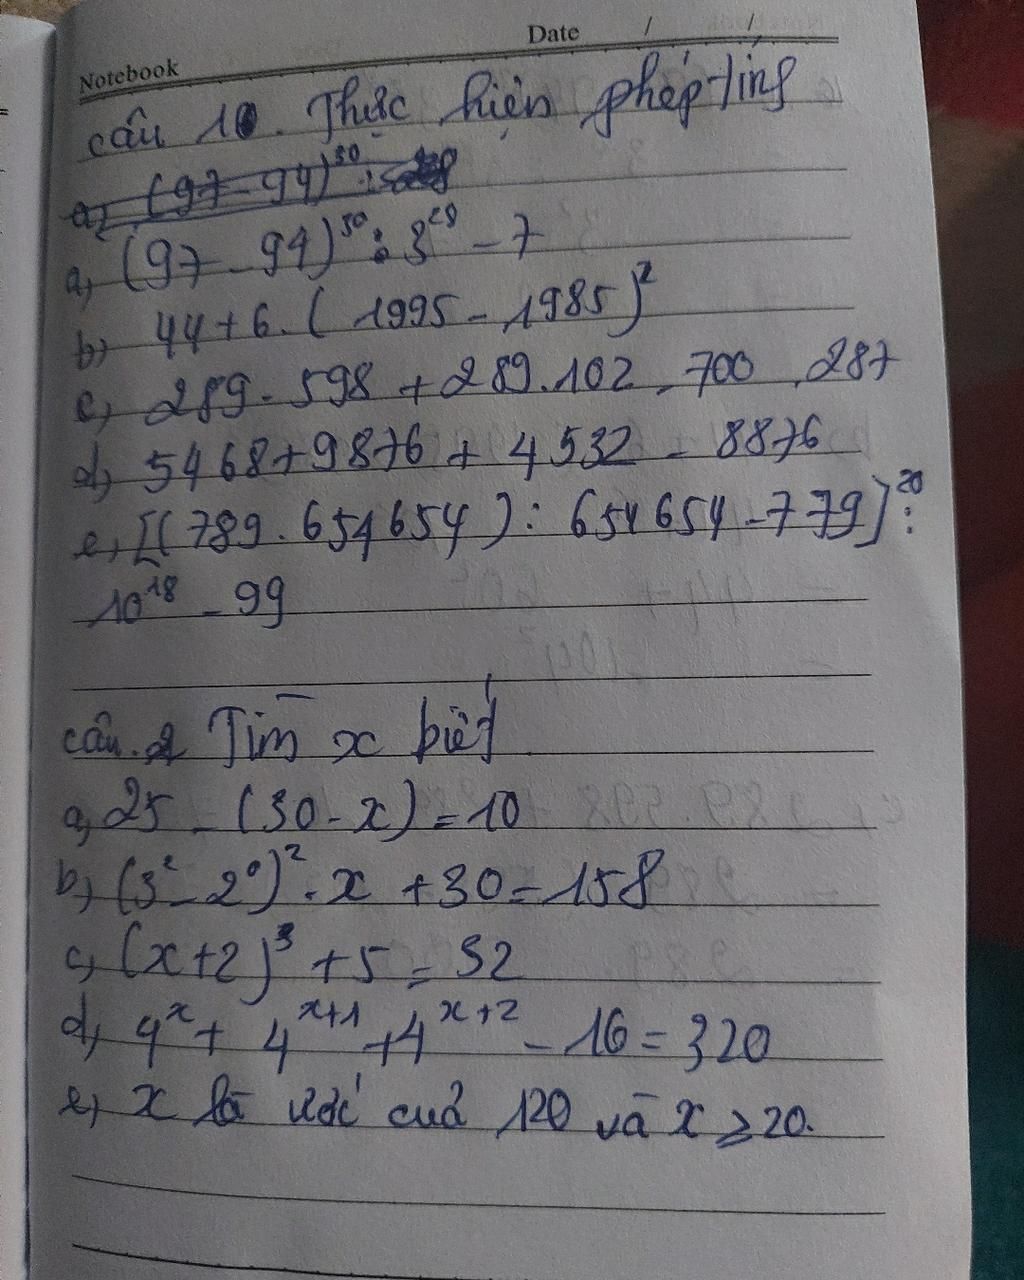 Notebook
Date / /
câu 10. Thực hiện phép tíng
a, (97 - 94)³⁰ :
a, (97 - 94)³⁰ : 3²⁸ - 7
b, 44 + 6 . ( 1995 - 1985 )²
c, 289 . 598 + 289 . 102 - 700 . 287
d, 5468 + 9876 + 4532 - 8876
e, [( 789 . 654654 ) : 654654 - 779]²⁰ :
10¹⁸ - 99
câu 2 Tìm x biết
a, 25 - (30 - x) = 10
b, (3² - 2⁰)² . x + 30 = 158
c, (x+2)³ + 5 = 32
d, 4ˣ + 4ˣ⁺¹ + 4ˣ⁺² - 16 = 320
e, x là ước cuả 120 và x ⩾ 20.